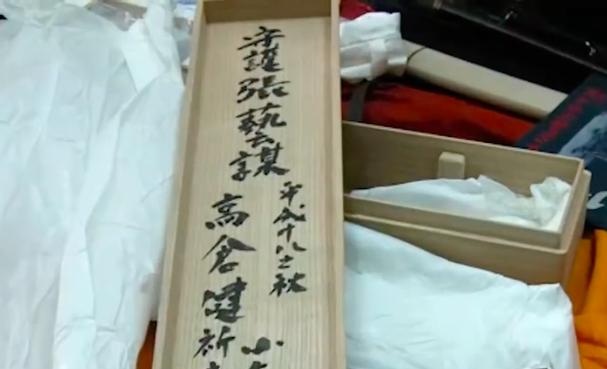 守護張藝謀
平成十八土秋
高倉健祈
小